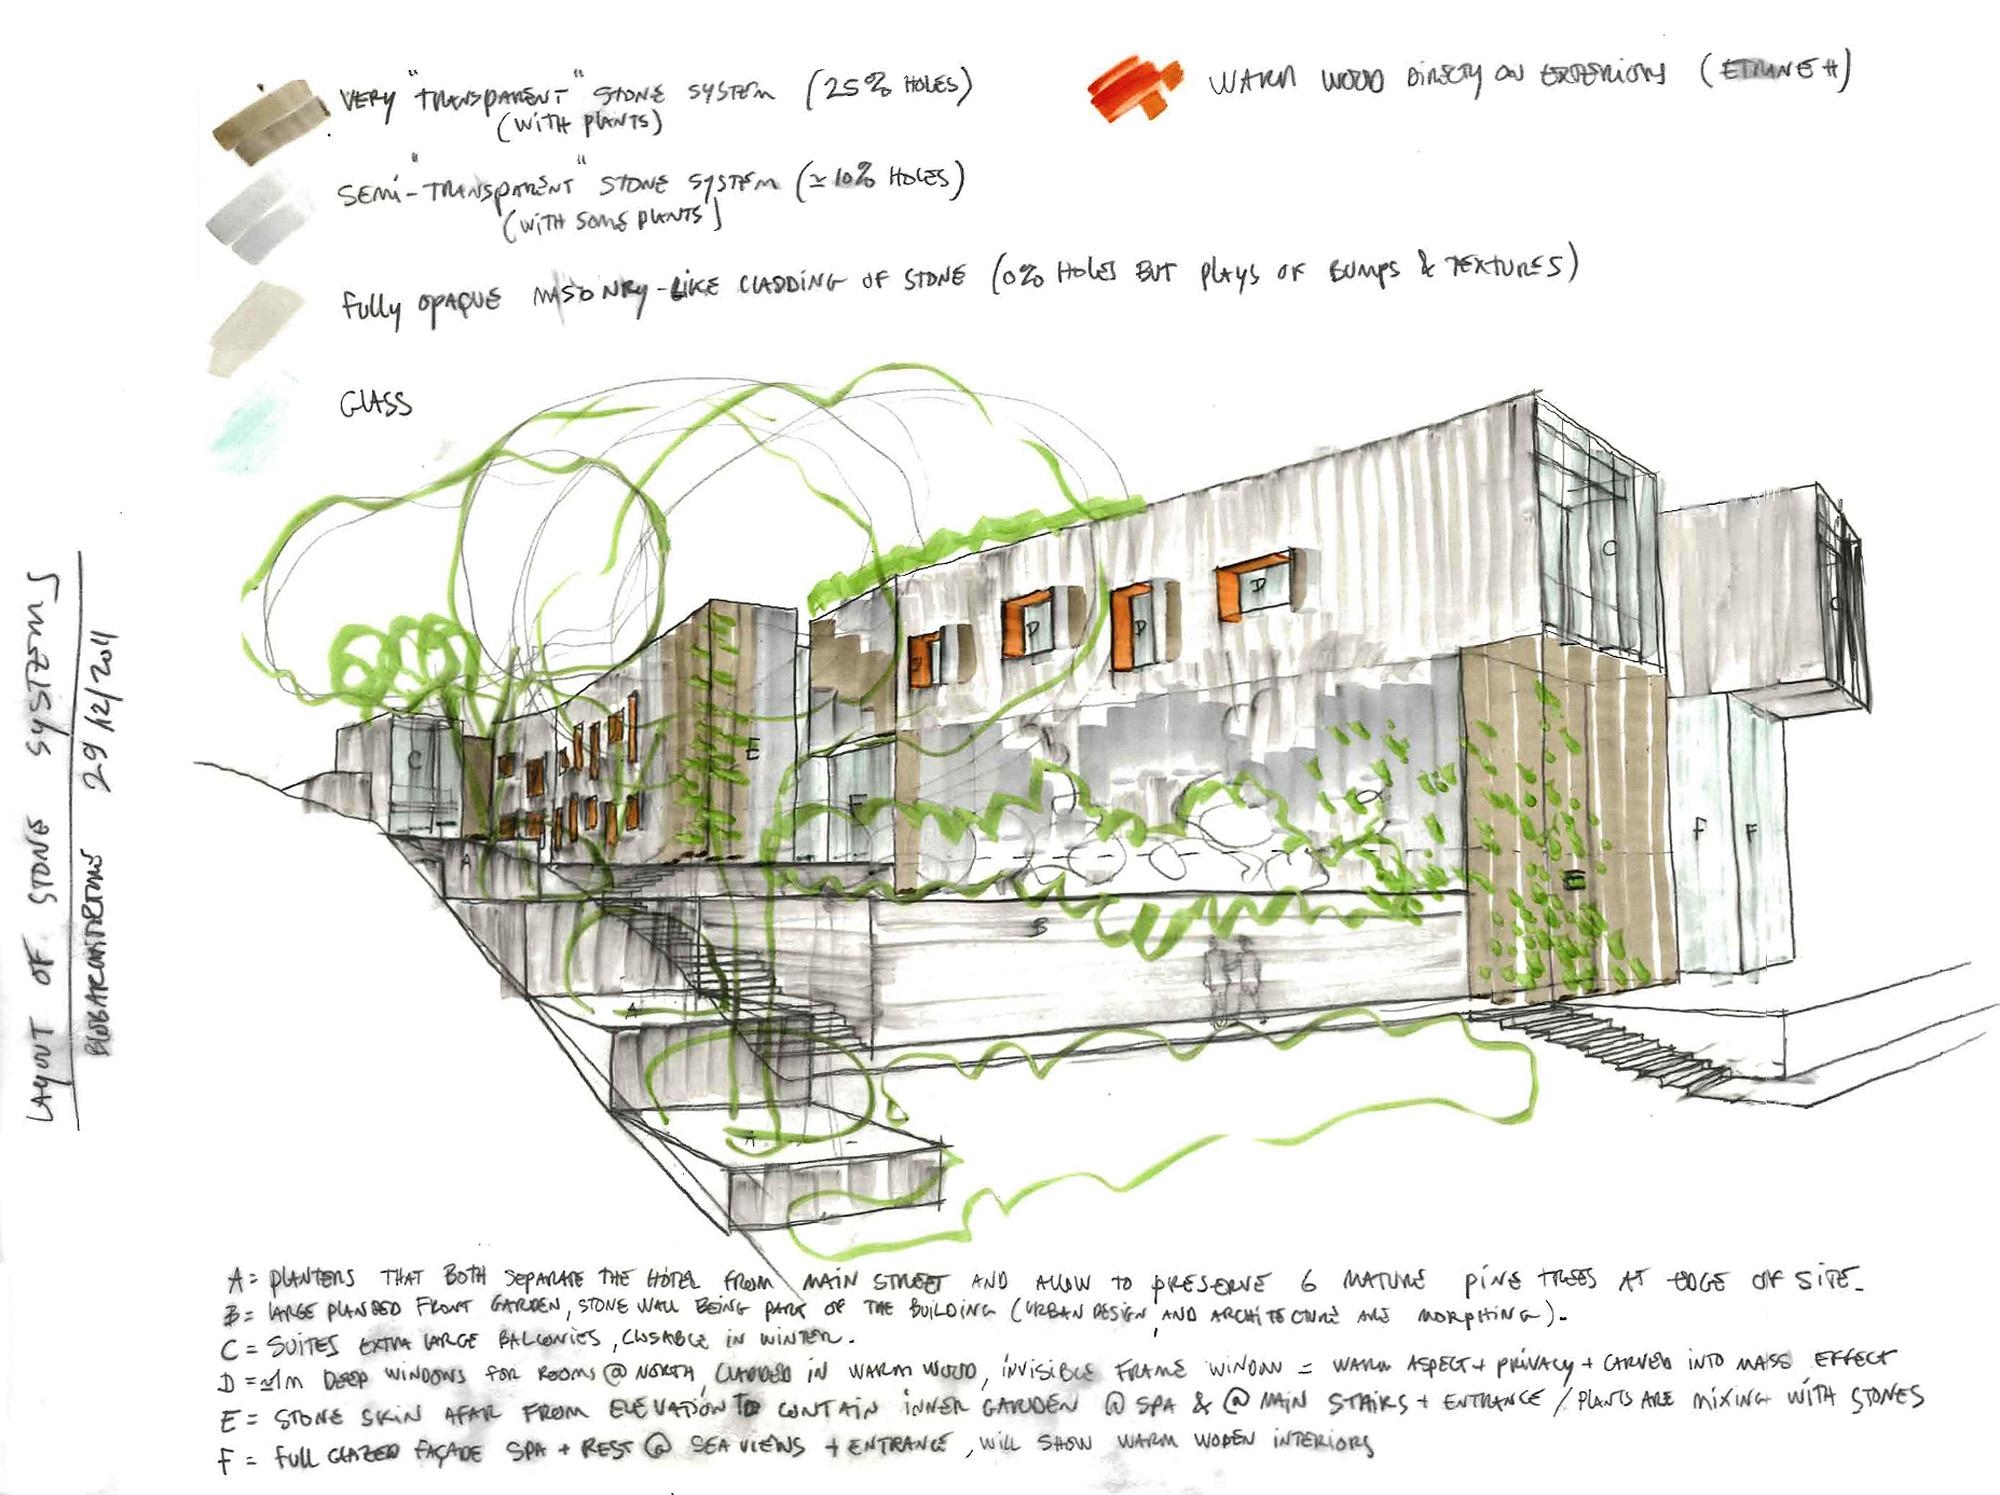 VERY "TRANSPARENT" STONE SYSTEM (25% HOLES)
(WITH PLANTS)
WARM WOOD DIRECTLY ON EXTERIORS (
SEMI-"TRANSPARENT" STONE SYSTEM (≃10% HOLES)
(WITH SOME PLANTS)
FULLY OPAQUE MASONRY-LIKE CLADDING OF STONE (0% HOLES BUT PLAYS OF BUMPS & TEXTURES)
GLASS
LAYOUT OF STONE SYSTEMS
29/12/2011
C
C
D
D
D
D
C
E
F
A
B
E
F
F
A
A
A = PLANTERS THAT BOTH SEPARATE THE HOTEL FROM MAIN STREET AND ALLOW TO PRESERVE 6 MATURE PINE TREES AT EDGE OF SITE.
B = LARGE PLANTED FRONT GARDEN, STONE WALL BEING PART OF THE BUILDING (URBAN DESIGN, AND ARCHITECTURE ARE MORPHING).
C = SUITES EXTRA LARGE BALCONIES, CLOSABLE IN WINTER.
D = ≃1M DEEP WINDOWS FOR ROOMS @ NORTH, CLADDED IN WARM WOOD, INVISIBLE FRAME WINDOW = WARM ASPECT + PRIVACY + CARVED INTO MASS EFFECT
E = STONE SKIN AFAR FROM ELEVATION TO CONTAIN INNER GARDEN @ SPA & @ MAIN STAIRS + ENTRANCE / PLANTS ARE MIXING WITH STONES
F = FULL GLAZED FAÇADE SPA + REST @ SEA VIEWS + ENTRANCE, WILL SHOW WARM WODEN INTERIORS